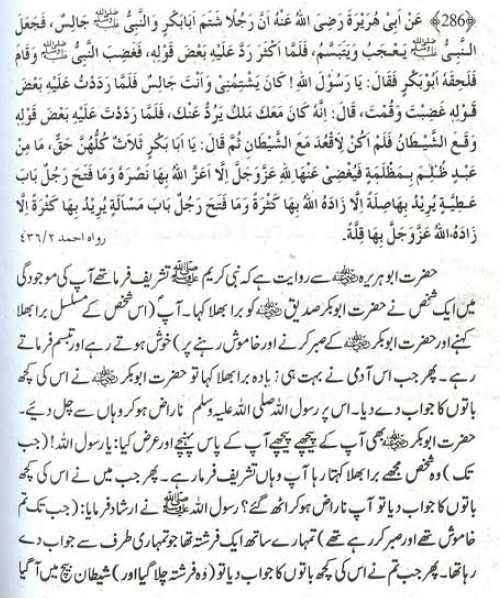 ﴿286﴾ عَنْ اَبِیْ هُرَيْرَةَ رَضِیَ اللهُ عَنْهُ اَنَّ رَجُلًا شَتَمَ اَبَابَكْرٍ وَالنَّبِیُّ ﷺ جَالِسٌ، فَجَعَلَ
النَّبِیُّ ﷺ يَعْجَبُ وَيَتَبَسَّمُ، فَلَمَّا اَكْثَرَ رَدَّ عَلَيْهِ بَعْضَ قَوْلِهٖ، فَغَضِبَ النَّبِیُّ ﷺ وَقَامَ
فَلَحِقَهٗ اَبُوْبَكْرٍ فَقَالَ: يَا رَسُوْلَ اللهِ! كَانَ يَشْتِمُنِیْ وَاَنْتَ جَالِسٌ فَلَمَّا رَدَدْتُ عَلَيْهِ بَعْضَ
قَوْلِهٖ غَضِبْتَ وَقُمْتَ، قَالَ: اِنَّهٗ كَانَ مَعَكَ مَلَكٌ يَرُدُّ عَنْكَ، فَلَمَّا رَدَدْتَ عَلَيْهِ بَعْضَ قَوْلِهٖ
وَقَعَ الشَّيْطَانُ فَلَمْ اَكُنْ لِاَقْعُدَ مَعَ الشَّيْطَانِ ثُمَّ قَالَ: يَا اَبَا بَكْرٍ ثَلَاثٌ كُلُّهُنَّ حَقٌّ، مَا مِنْ
عَبْدٍ ظُلِمَ بِمَظْلِمَةٍ فَيُغْضِیْ عَنْهَا لِلّٰهِ عَزَّوَجَلَّ اِلَّا اَعَزَّ اللهُ بِهَا نَصْرَهٗ وَمَا فَتَحَ رَجُلٌ بَابَ
عَطِيَّةٍ يُرِيْدُ بِهَا صِلَةً اِلَّا زَادَهُ اللهُ بِهَا كَثْرَةً وَمَا فَتَحَ رَجُلٌ بَابَ مَسْاَلَةٍ يُرِيْدُ بِهَا كَثْرَةً اِلَّا
زَادَهُ اللهُ عَزَّوَجَلَّ بِهَا قِلَّةً. رواه احمد ٤٣٦/٢
حضرت ابوہریرہ رضی اللہ عنہ سے روایت ہے کہ نبی کریم ﷺ تشریف فرما تھے آپ کی موجودگی
میں ایک شخص نے حضرت ابوبکر صدیق رضی اللہ عنہ کو برا بھلا کہا۔ آپ (اس شخص کے مسلسل برا بھلا
کہنے اور حضرت ابوبکر رضی اللہ عنہ کے صبر کرنے اور خاموش رہنے پر) خوش ہوتے رہے اور تبسم فرماتے
رہے۔ پھر جب اس آدمی نے بہت ہی زیادہ برا بھلا کہا تو حضرت ابوبکر رضی اللہ عنہ نے اس کی کچھ
باتوں کا جواب دے دیا۔ اس پر رسول اللہ صلی اللہ علیہ وسلم ناراض ہو کر وہاں سے چل دیئے۔
حضرت ابوبکر رضی اللہ عنہ بھی آپ کے پیچھے پیچھے آپ کے پاس پہنچے اور عرض کیا: یا رسول اللہ! (جب
تک) وہ شخص مجھے برا بھلا کہتا رہا آپ وہاں تشریف فرما رہے۔ پھر جب میں نے اس کی کچھ
باتوں کا جواب دیا تو آپ ناراض ہو کر اٹھ گئے؟ رسول اللہ ﷺ نے ارشاد فرمایا: (جب تک تم
خاموش تھے اور صبر کر رہے تھے) تمہارے ساتھ ایک فرشتہ تھا جو تمہاری طرف سے جواب دے
رہا تھا۔ پھر جب تم نے اس کی کچھ باتوں کا جواب دیا تو (وہ فرشتہ چلا گیا اور) شیطان بیچ میں آ گیا